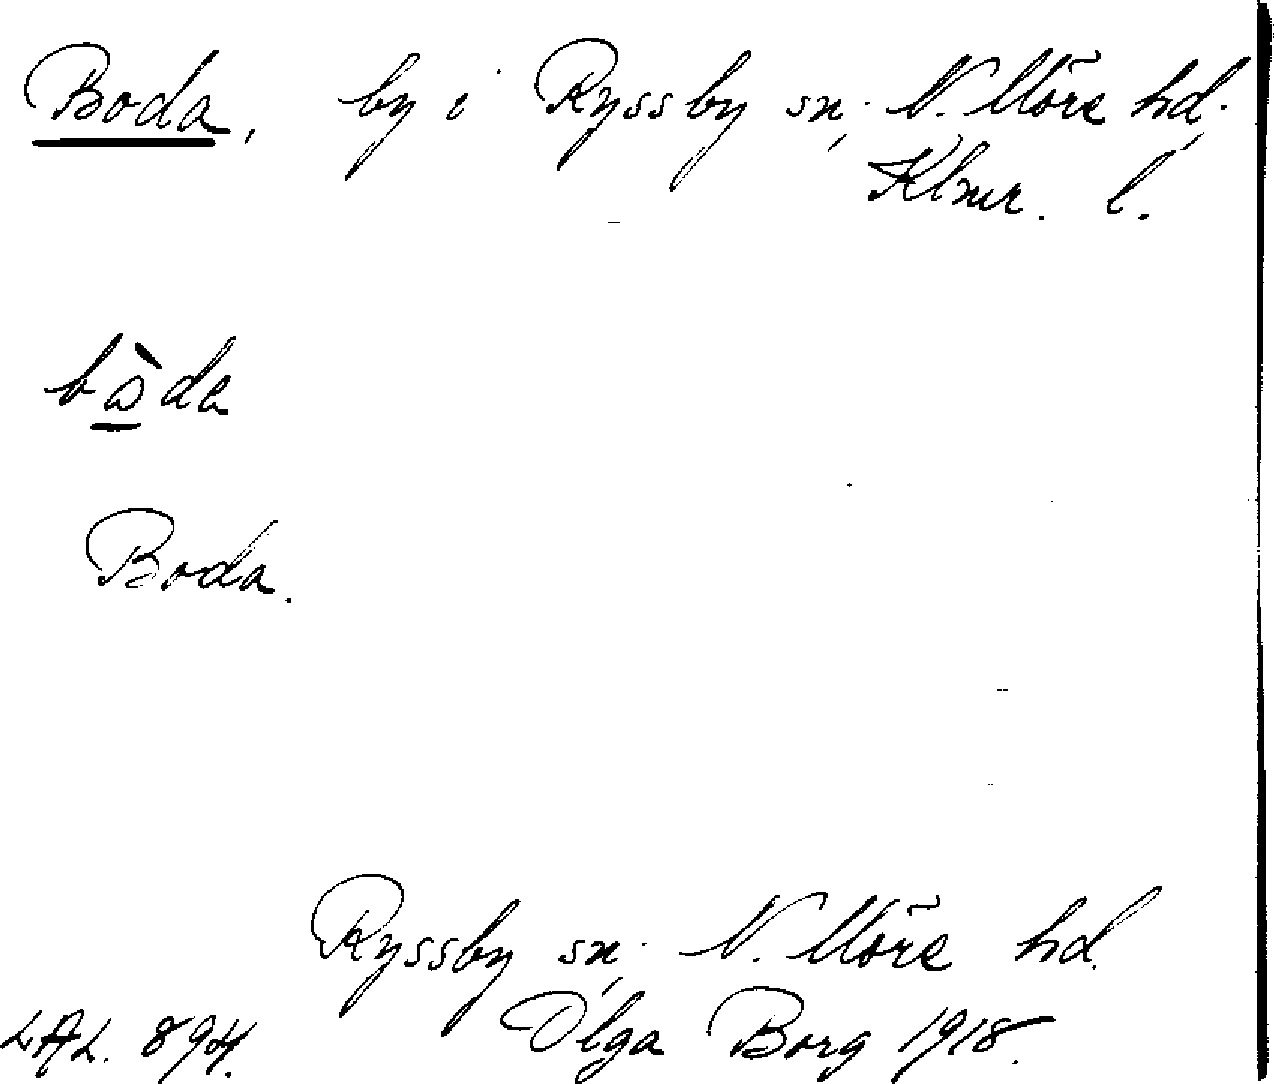 Boda, by i Ryssby sn., N. Möre hd.,
Klmr. l.
bàda
Boda.
Ryssby sn., N. Möre hd.
LAL. 894. Olga Borg 1918.